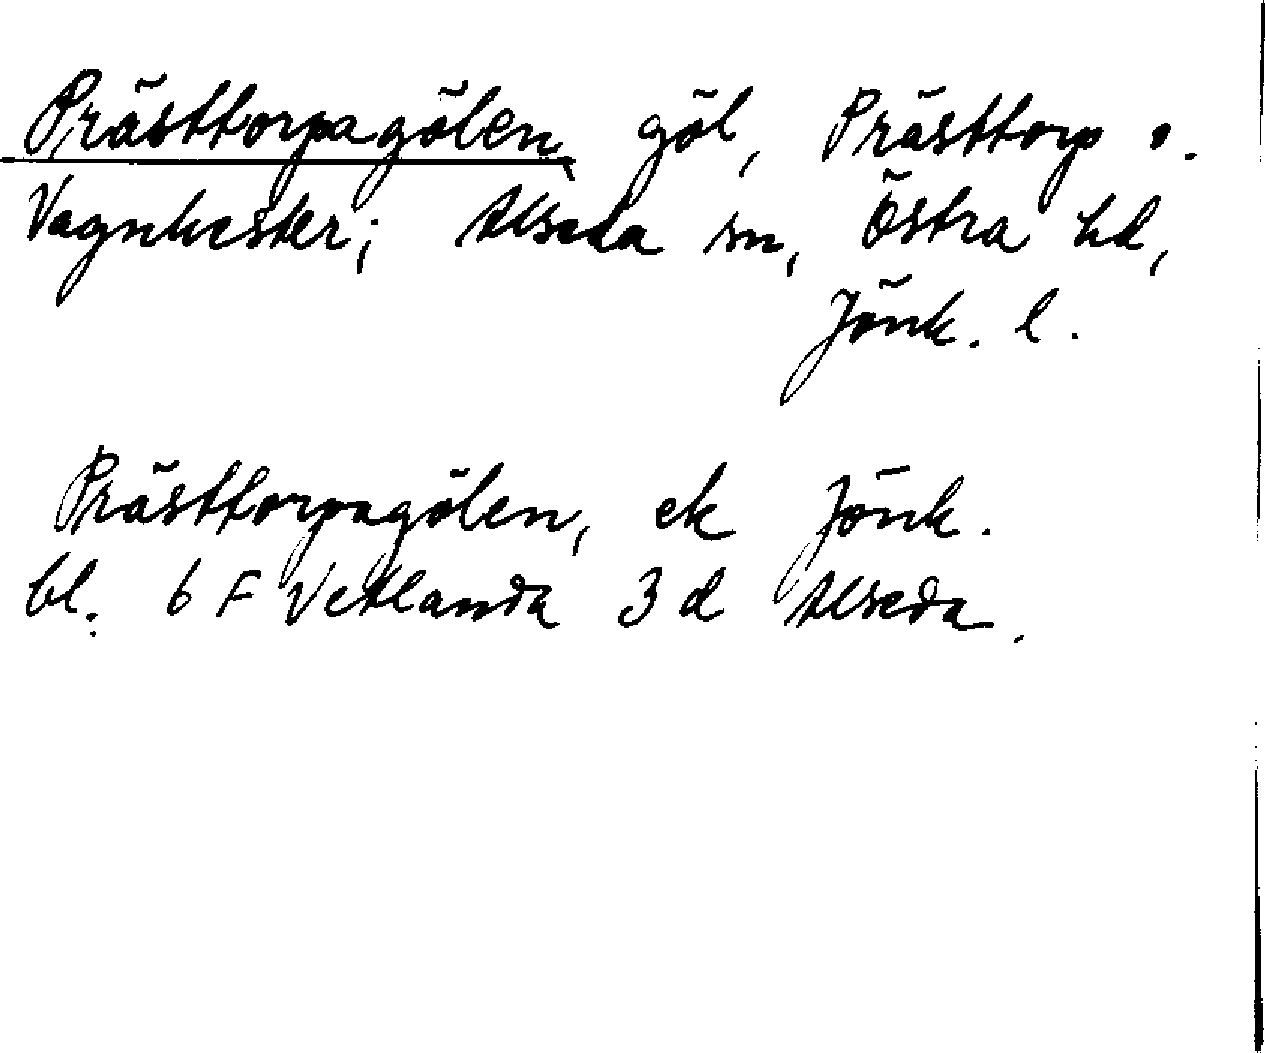 Prästtorpagölen, göl, Prästtorp o.
Vagnhester; Alseda sn, Östra hd,
Jönk. l.
Prästtorpagölen, ek Jönk.
bl. 6 F Vetlanda 3 d Alseda.